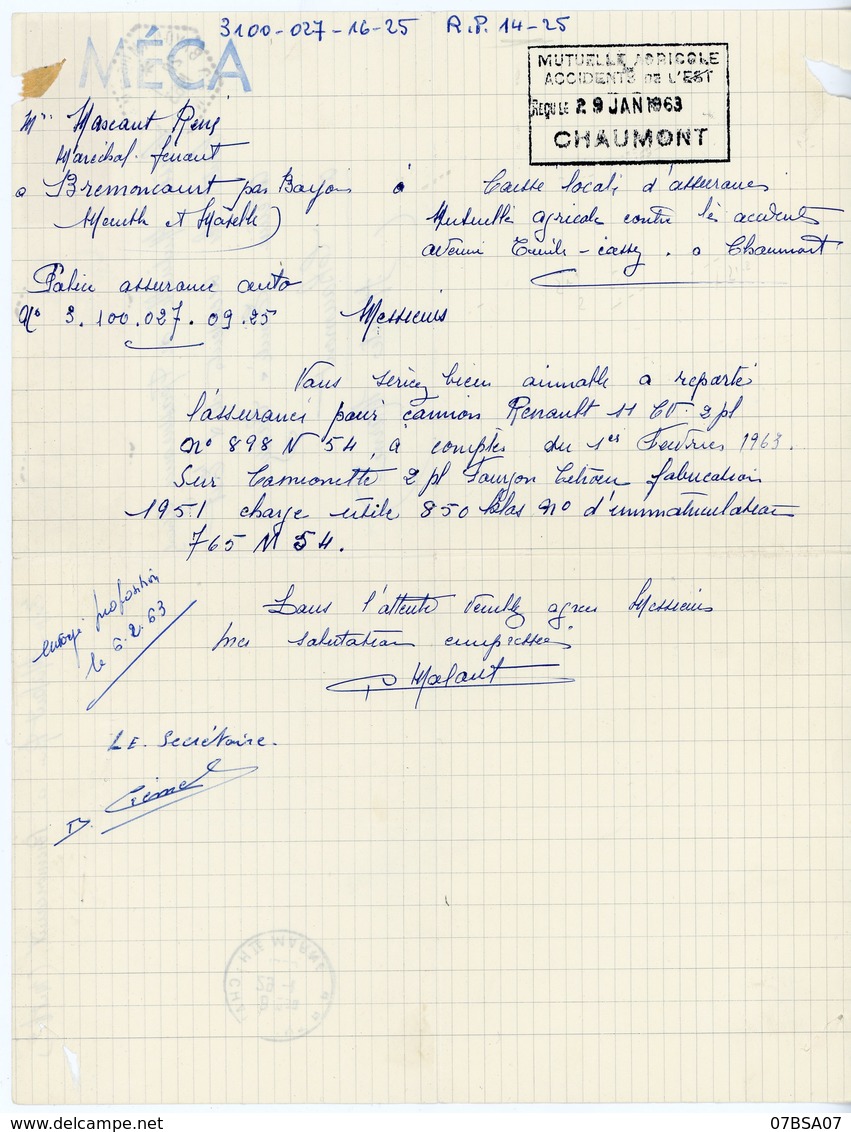 3100-027-16-25 R.P. 14-25
MÉCA
MUTUELLE AGRICOLE
ACCIDENTS DE L'EST
REÇU LE 29 JAN 1963
CHAUMONT
René
Maréchal-ferrant
à Bremoncourt par Bayon à
Meurthe et Moselle)
Caisse locale d'assurances
Mutuelle agricole contre les accidents
avenue Emile-Cassez. à Chaumont
Police assurance auto
No 3.100.027.09.25 Messieurs
Vous seriez bien aimable a reporté
l'assurance pour camion Renault 11 CV. 2 pl
no 898 N 54, à compter du 1er Février 1963.
Sur Camionette 2 pl Fourgon Citroen fabrication
1951 charge utile 850 no d'immatriculation
765 M 54.
Dans l'attente Veuillez agréer Messieurs
mes salutations empressées
envoyé proposition
le 6.2.63
LE Secrétaire.
HTE MARNE
07BSA07